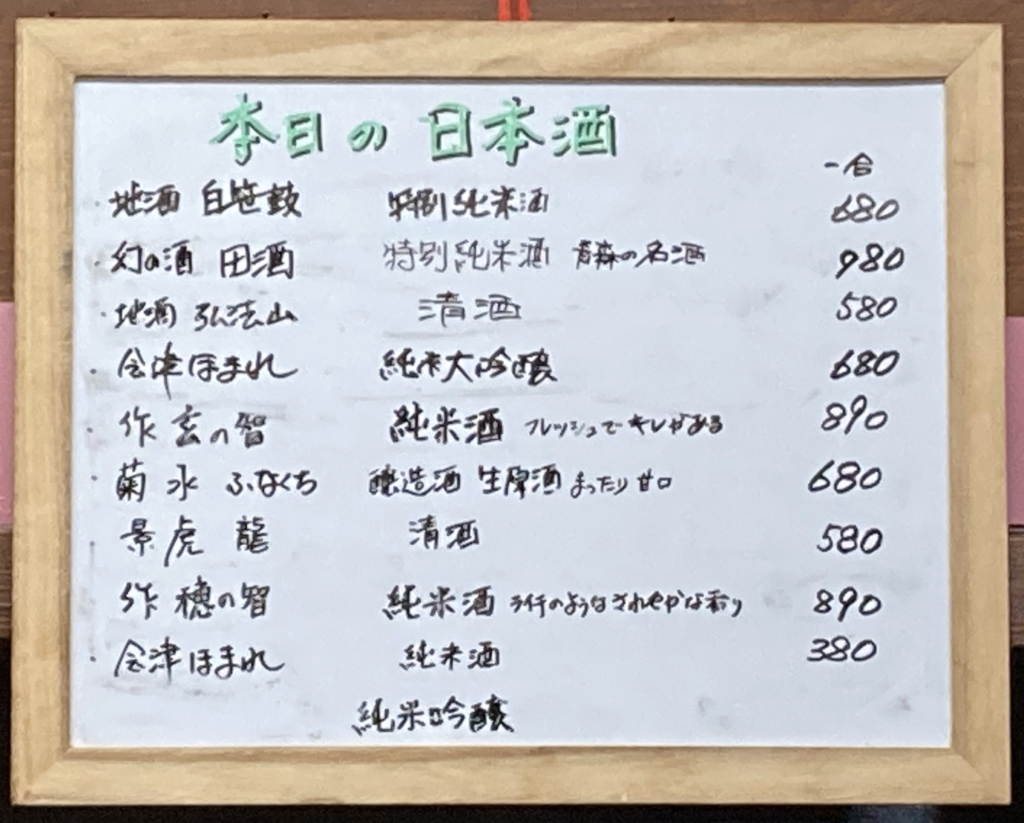 本日の日本酒
一合
・地酒 白笹鼓 特別純米酒 680
・幻の酒 田酒 特別純米酒 青森の名酒 980
・地酒 弘法山 清酒 580
・会津ほまれ 純米大吟醸 680
・作 玄の智 純米酒 フレッシュでキレがある 890
・菊水 ふなくち 醸造酒 生原酒 まったり甘口 680
景虎 龍 清酒 580
・作 穂の智 純米酒 ライチのようなさわやかな香り 890
・会津ほまれ 純米酒 380
純米吟醸